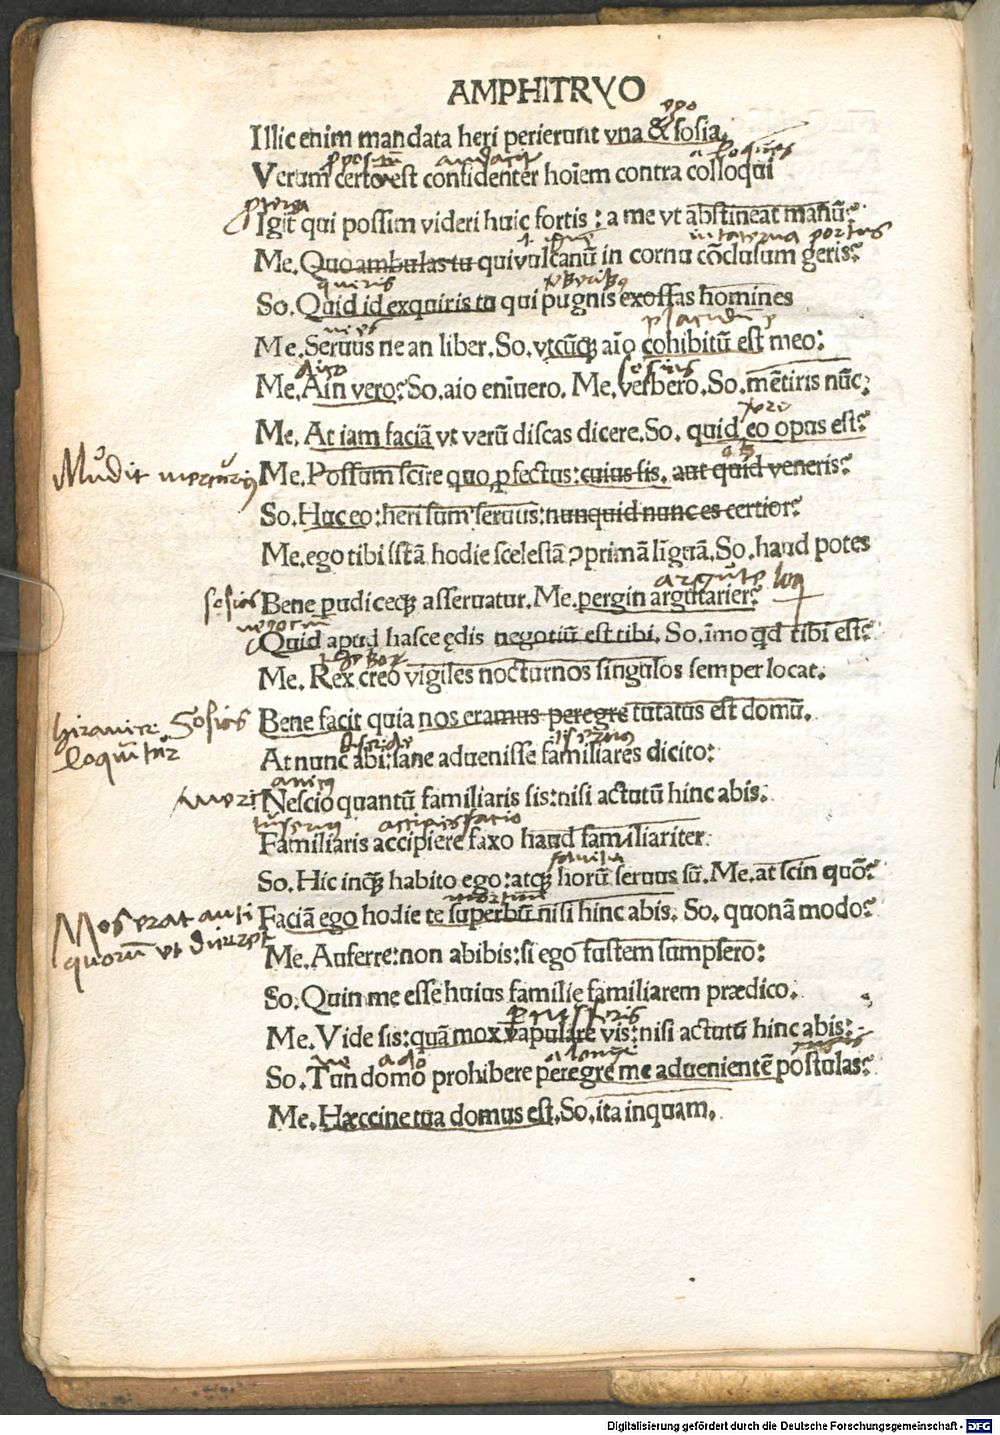 AMPHITRVO
ego
Illic enim mandata heri perierunt vna & sosia.
Verum certo est confidenter hoiem contra colloqui
Igit qui possim videri huic fortis: a me vt abstineat manū.
Me. Quo ambulas tu qui vulcanū in cornu cōclusum geris?
So. Quid id exquiris tu qui pugnis exossas homines
Me. Seruus ne an liber. So. vtcūqꝫ aīo cohibitū est meo:
Me. Ain vero? So. aio enīuero. Me. verbero. So. mētiris nūc:
Me. At iam faciā vt verū discas dicere. So. quid eo opus est?
Mudit mercurius
Me. Possum scire quo ꝓfectus: cuius sis. aut quid veneris?
So. Huc eo: heri sum seruus: nunquid nunc es certior?
Me. ego tibi istā hodie scelestā ꝯprimā līguā. So. haud potes
argute loq
sosias
Bene pudiceqꝫ asseruatur. Me. pergin argutarier?
Quid apud hasce ędis negotiū est tibi. So. īmo qd tibi est?
Me. Rex creo vigiles nocturnos singulos semper locat.
Sosias
loquitur
Bene facit quia nos eramus peregre tutatus est domū.
At nunc abi: sane aduenisse familiares dicito:
Nescio quantū familiaris sis: nisi actutū hinc abis.
Familiaris accipiere faxo haud familiariter.
familia
So. Hic inqꝫ habito ego: atqꝫ horū seruus sū. Me. at scin quō?
Mos erat anti
quorū vt
Faciā ego hodie te superbū nisi hinc abis. So. quonā modo?
Me. Auferre: non abibis: si ego fustem sumpsero:
So. Quin me esse huius familie familiarem prædico.
Me. Vide sis: quā mox vapulare vis: nisi actutū hinc abis:
So. Tun domo prohibere peregre me aduenientē postulas?
Me. Hæccine tua domus est. So. ita inquam.
Digitalisierung gefördert durch die Deutsche Forschungsgemeinschaft - DFG